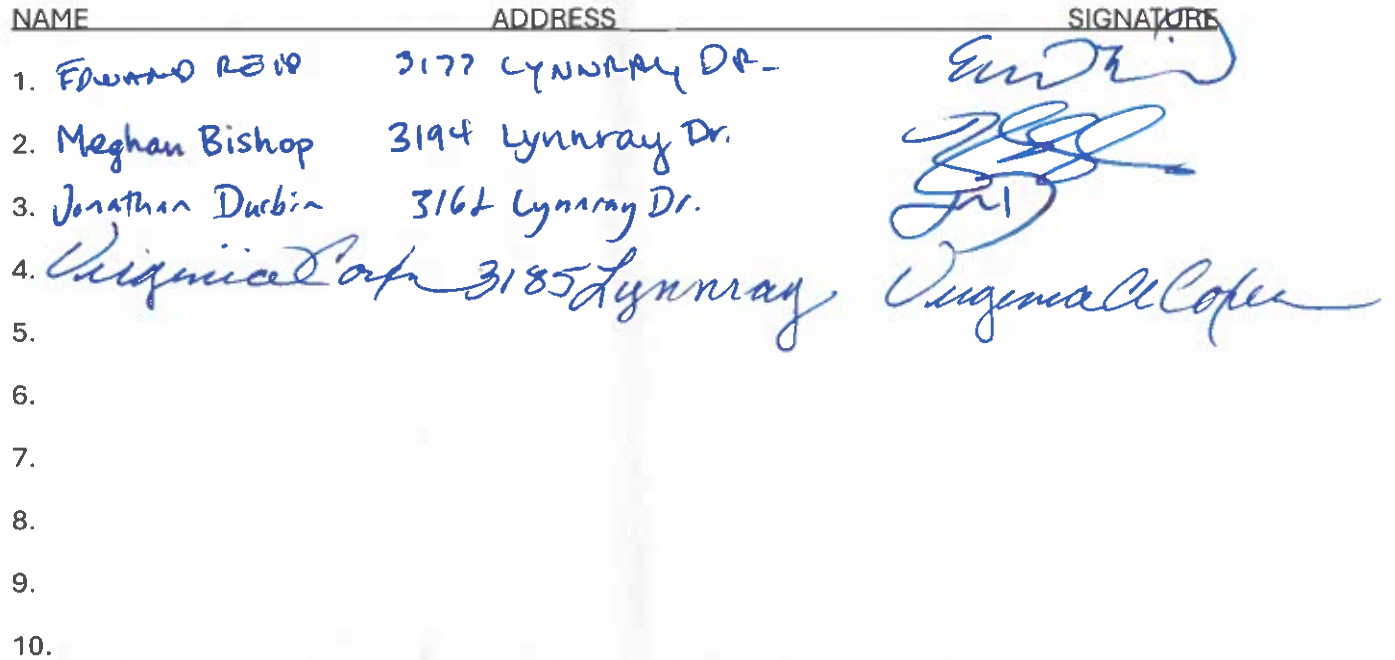 NAME ADDRESS SIGNATURE
1. EDWARD REID 3177 LYNNRAY DR.
2. Meghan Bishop 3194 Lynnray Dr.
3. Jonathan Durbin 3162 Lynnray Dr.
4. Virginia 3185 Lynnray Virginia
5.
6.
7.
8.
9.
10.